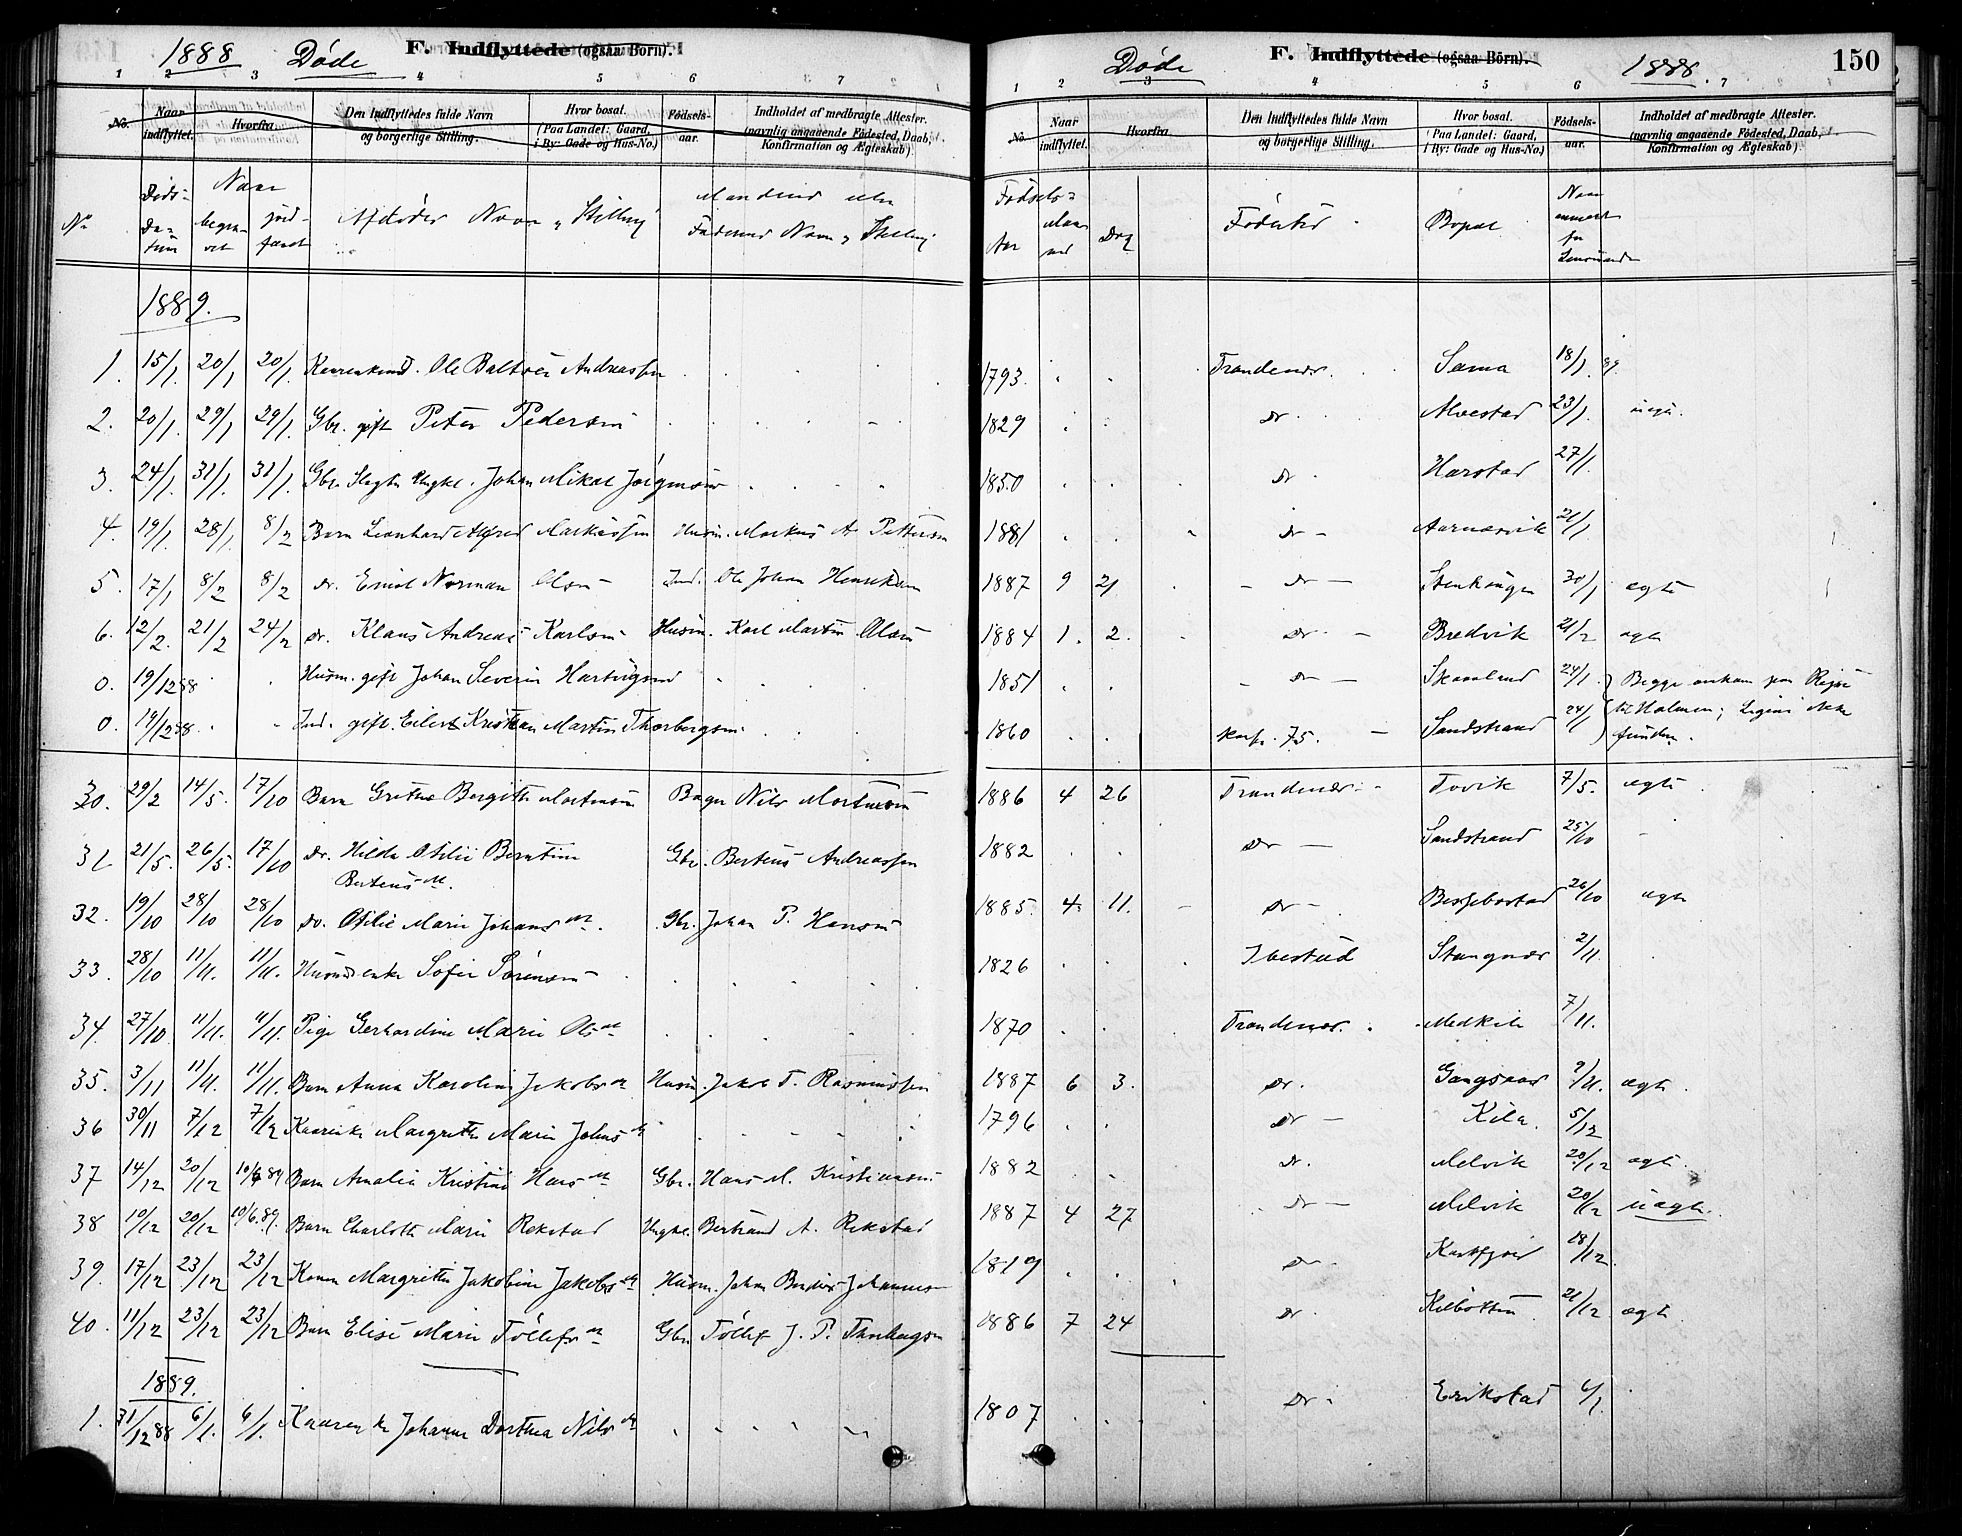 1888 Døde F. Indflyttede (ogsaa Børn).
1 2 3 4 5 6 7
No. Naar indflyttet. Hvorfra. Den Indflyttedes fulde Navn og borgerlige Stilling. Hvor bosat. (Paa Landet: Gaard, i By: Gade og Hus-No.) Fødsels-aar. Indholdet af medbragte Attester. (navnlig angaaende Fødested, Daab, Konfirmation og Ægteskab).
No Døds-Datum Naar begravet jordfæstet Afdødes Navn og Stilling Mandens eller Faderens Navn og Stilling
1889.
1. 15/1. 20/1 20/1. Ole Baltser Andreassen
2. 20/1. 29/1 29/1. Gbr. gift Peter Pedersen
3. 24/1. 31/1. 31/1. Gbr. Ungkl. Johan Mikal Jørgensen
4. 19/1. 28/1. 8/2 Barn Leonhard Alfred Markussen Husm. Markus A. Pettersen
5. 17/1 8/2 8/2 Do. Emil Norman Olsen Ind. Ole Johan Henriksen
6. 12/2. 21/2 24/2 Do. Klaus Andreas Karlsen Husm. Karl Martin Olsen
0. 19/12 88 Husm. gift Johan Severin Hartvigsen
0. 19/12 88. Ind. gift. Eilert Kristian Martin Thorbergsen.
30. 29/2 14/5. 17/10 Barn Grethe Bergitte Mortensen Nils Mortensen
31 21/5. 26/5. 17/10 Do. Hilda Otilie Berntine Berteus Gbr. Berteus Andreassen
32. 19/10 28/10 28/10 Do. Otilie Marie Johans Gbr. Johan P. Hansen
33. 28/10 11/11. 11/11. Husmdsenke Sofie Sørensen
34. 27/10. 11/11. 11/11. Pige Gerhardine Marie Ols
35. 3/11 11/11. 11/11. Barn Anna Karoline Jakobs Husm. Jakob T. Rasmussen
36 30/11 7/12 7/12 Margrethe Marie Johns
37 14/12 20/12 10/6 89 Barn Amalie Kristine Hans Gbr. Hans M. Kristiansen
38 10/12 20/12 10/6.89. Barn Charlotte Marie Rekstad Ungkl. Bertrand A. Rekstad
39. 17/12 23/12 23/12 Kone Margrethe Jakobine Jakobs Husm. Johan
40. 11/12 23/12 23/12 Barn Elise Marie Tøllefs Gbr. Tøllef J. P. Thorbergsen
1889.
1. 31/12 88 6/1. 6/1. Johanna Dorthea Nils
Døde F. Indflyttede (ogsaa Børn). 1888. 150
1 2 3 4 5 6 7
No. Naar indflyttet. Hvorfra. Den Indflyttedes fulde Navn og borgerlige Stilling. Hvor bosat. (Paa Landet: Gaard, i By: Gade og Hus-No.) Fødsels-aar. Indholdet af medbragte Attester. (navnlig angaaende Fødested, Daab, Konfirmation og Ægteskab).
Fødsels- Aar Maaned Dag Fødested Bopæl Naar anmeldt for Lensmanden
1793. Trondenæs. Sama 18/1. 89.
1829 Do. Alvestad 23/1.
1850 Do. Harstad 27/1.
1881 Do. Aarnæsvik 21/1
1887 9 21 Do. 30/1 ægte
1884 1. 2. Do. Bredvik 21/2 ægte
1851 Do. Skaanland 24/1. Begge omkom paa Rejse
1860 75. Sandstrand 24/1 til Holmen; Ligene ikke
funden.
1886 4 26 Trondenæs Tovik 7/5. ægte
1882 Do. Sandstrand 25/10
1885. 4. 11. Do. Bessebostad 26/10 ægte
1826 Ibestad Stangnæs 2/11.
1870 Trondenæs. Medkile 7/11.
1887 6 3. Do. Gangsaas 9/11. ægte.
1796 Do. Kila. 5/12
1882 Do. Melvik 20/12 ægte.
1887 4 27 Do. Melvik 20/12 uægte.
1819 Do. Kasfjord 18/12.
1886 7 24 Do. Kilbotten 21/12 ægte
1807 Do. Erikstad 6/1.